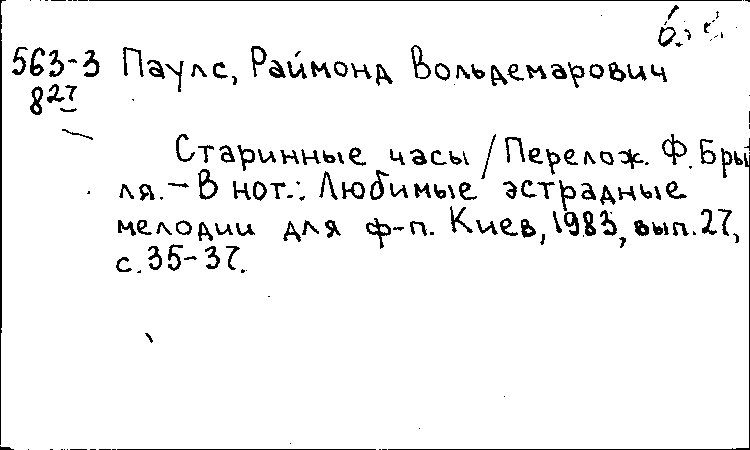 563-3 Паулс, Раймонд Вольдемарович
827
Старинные часы / Перелож. Ф. Бры
ля. - В нот.: Любимые эстрадные
мелодии для ф-п. Киев, 1983, вып. 27,
с. 35-37.